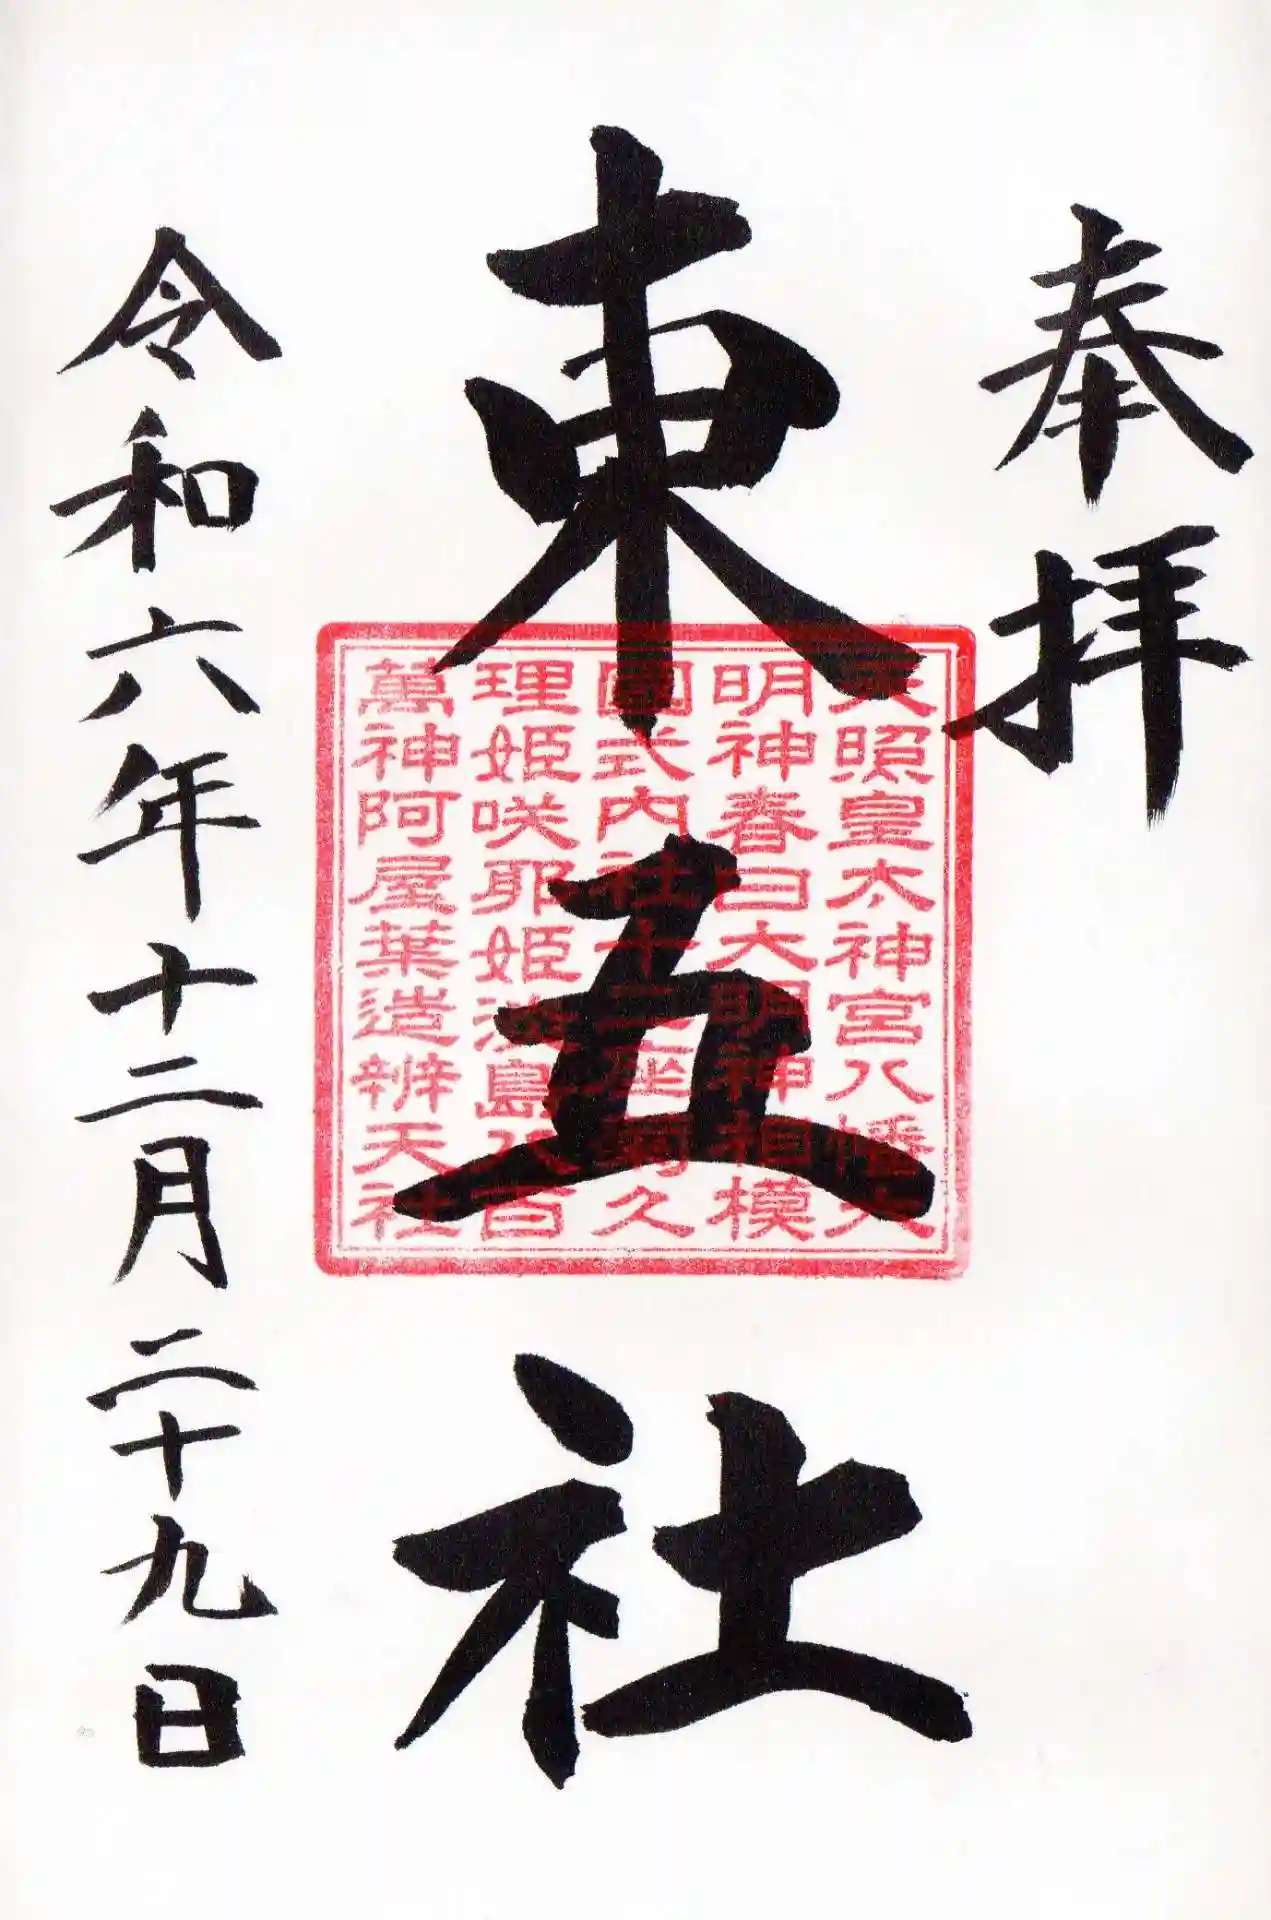 奉拝
東五社
天照皇太神宮八幡大
明神春日大明神相模
國式内社十三座菊久
理姫咲耶姫淡島八百
萬神阿屋葉造辨天社
令和六年十二月二十九日